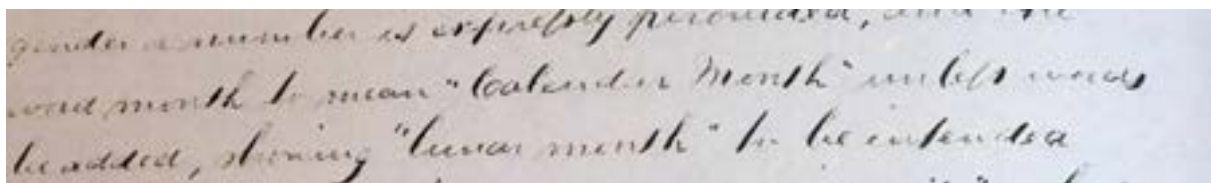 gender or number is expressly provided, and the
word month to mean "Calender Month" unless words
be added, showing "lunar month" to be intended